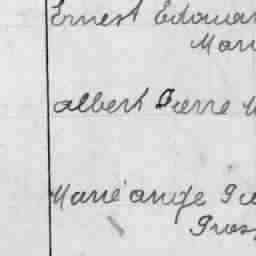 Ernest Edouar
Mari
albert Pierre M
Marie ange Pie
Pros